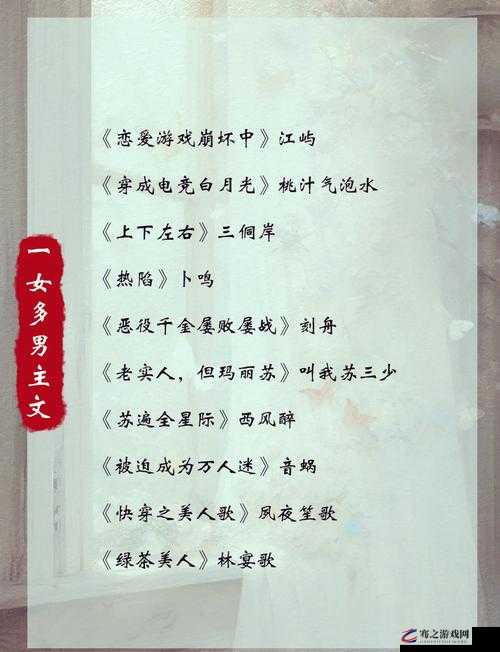 一女多男主文
《恋爱游戏崩坏中》江屿
《穿成电竞白月光》桃汁气泡水
《上下左右》三侗岸
《热陷》卜鸣
《恶役千金屡败屡战》刻舟
《老实人，但玛丽苏》叫我苏三少
《苏遍全星际》西风醉
《被迫成为万人迷》音蜗
《快穿之美人歌》凤夜笙歌
《绿茶美人》林宴歌
骞之游戏网